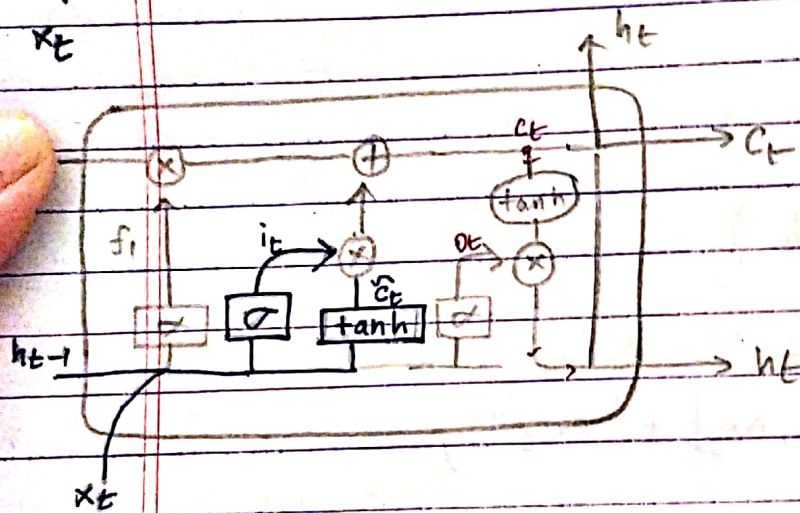 xt
ht
ct
Ct
×
+
tanh
ft
it
×
ot
×
c̃t
σ
σ
tanh
σ
ht-1
ht
xt